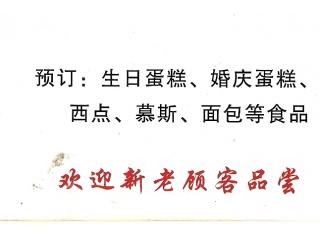 预订：生日蛋糕、婚庆蛋糕、
西点、慕斯、面包等食品
欢迎新老顾客品尝